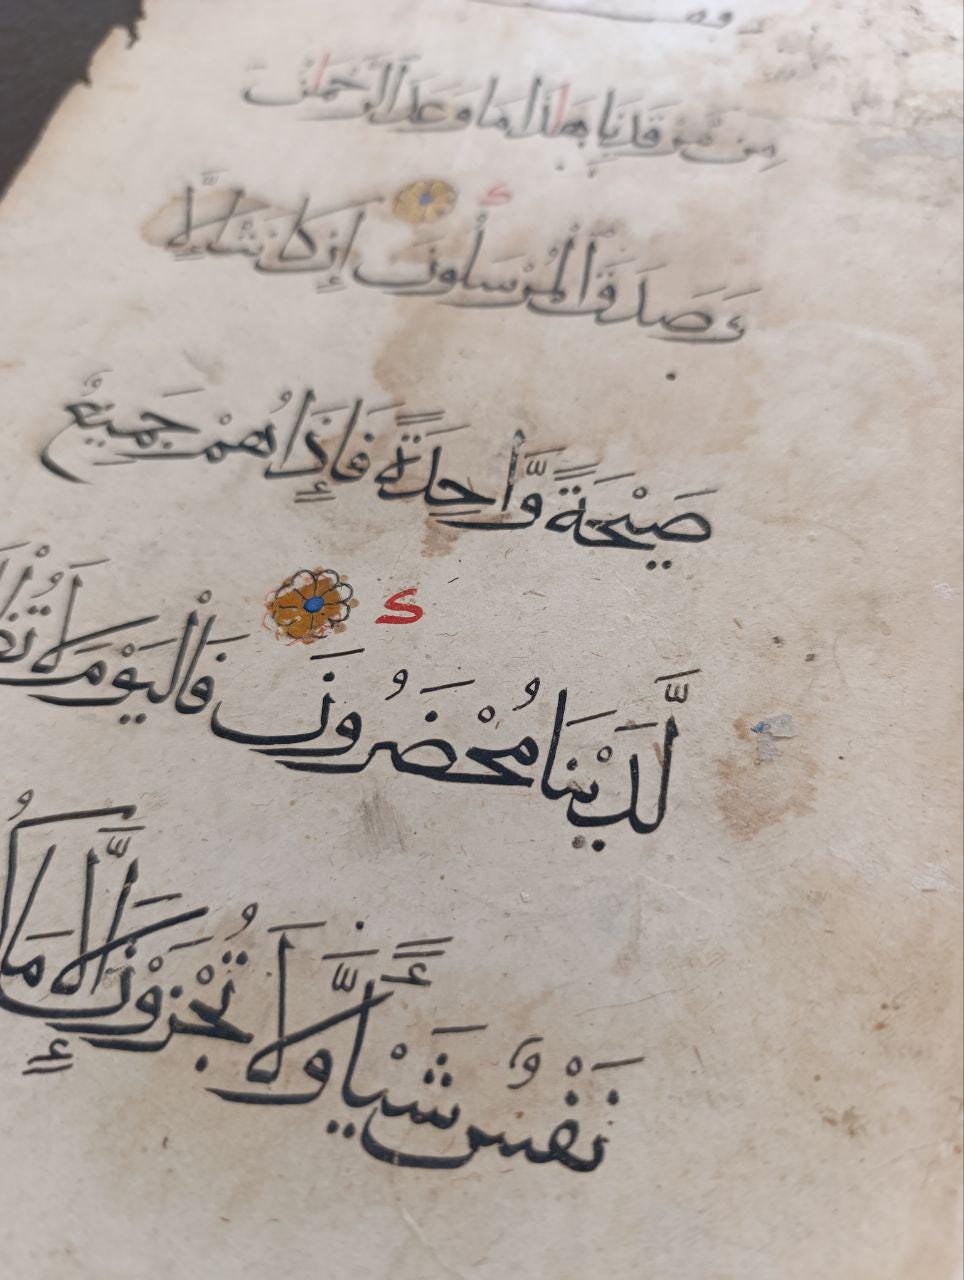 مِن مَّرْقَدِنَا هَٰذَا مَا وَعَدَ الرَّحْمَٰنُ
وَصَدَقَ الْمُرْسَلُونَ إِن كَانَتْ إِلَّا
صَيْحَةً وَّاحِدَةً فَإِذَا هُمْ جَمِيعٌ
لَّدَيْنَا مُحْضَرُونَ فَالْيَوْمَ لَا
نَفْسٌ شَيْـًٔا وَّلَا تُجْزَوْنَ إِلَّا مَا